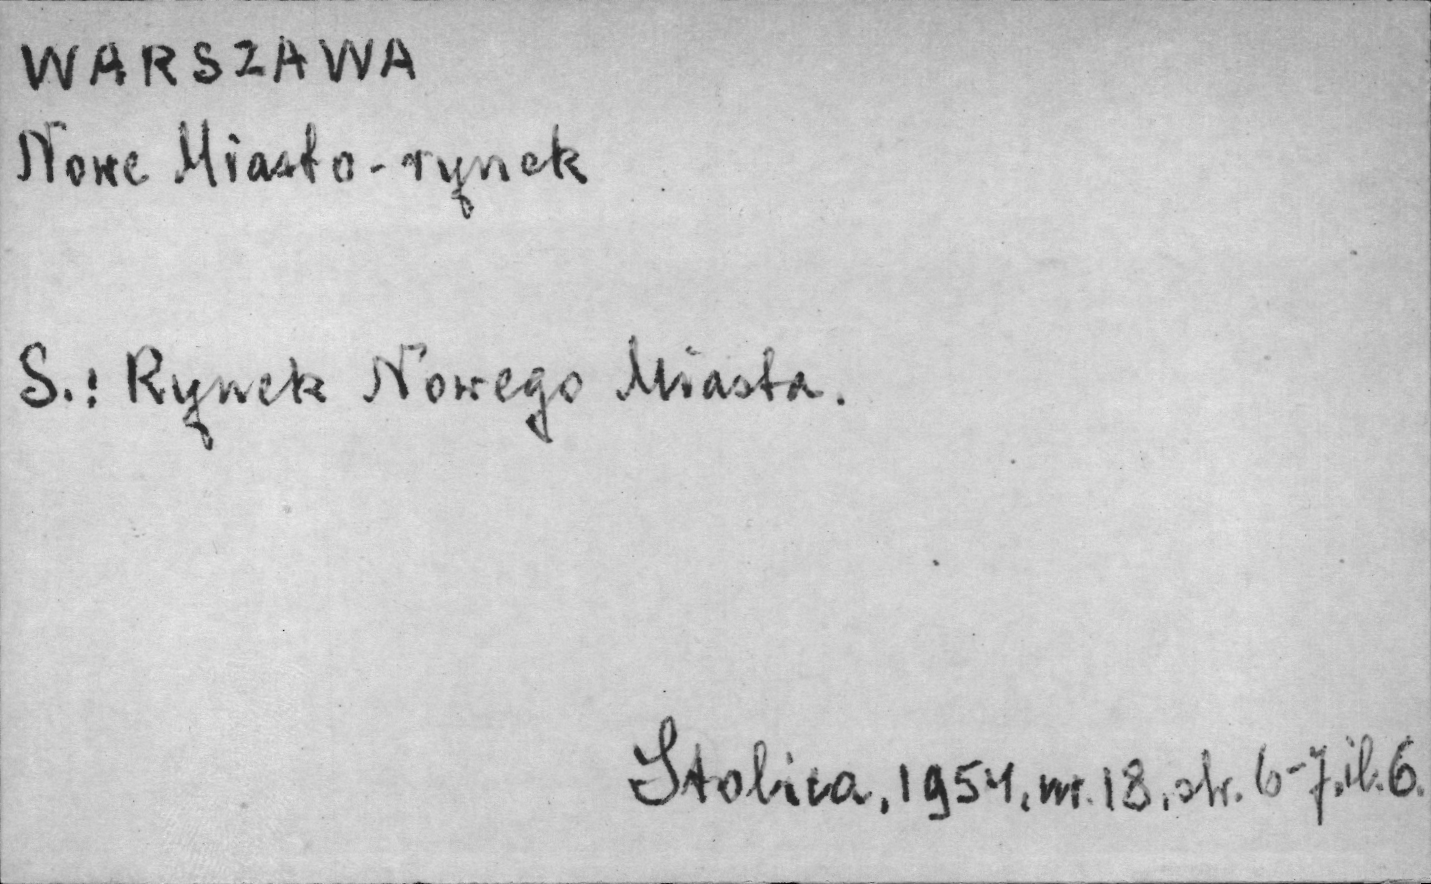 WARSZAWA
Nowe Miasto - rynek
S.: Rynek Nowego Miasta.
Stolica, 1954, nr. 18, str. 6-7, il. 6.